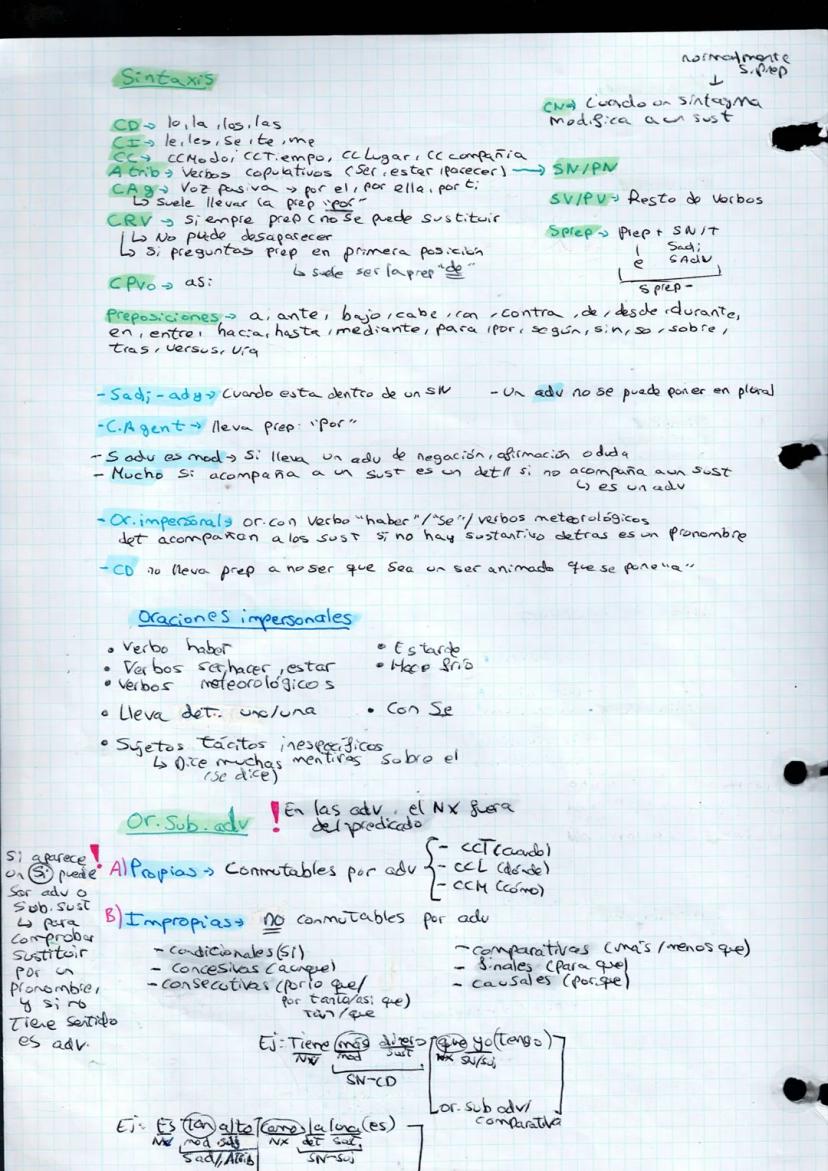 normalmente
S.prep
↓
Sintaxis
CN→ Cuando un sintagma
modifica a un sust
CD→ lo, la, los, las
CI→ le, les, se, te, me
CC→ CCModo, CCTiempo, CCLugar, CCcompañía
Atrib→ Verbos copulativos (ser, estar, parecer) → SN/PN
CAg→ Voz pasiva → por el, por ella, por ti
↳ suele llevar la prep "por"
SV/PV→ Resto de verbos
CRV→ siempre prep (no se puede sustituir
↳ No puede desaparecer
↳ Si preguntas prep en primera posición
↳ suele ser la prep "de"
Sprep→ Prep + SN/T
Sadj
e SAdv
Sprep-
CPvo→ así
Preposiciones→ a, ante, bajo, cabe, con, contra, de, desde, durante,
en, entre, hacia, hasta, mediante, para, por, según, sin, so, sobre,
tras, versus, vía
- Sadj-ady→ Cuando esta dentro de un SN
- Un adv no se puede poner en plural
- C.Agent→ lleva prep: "por"
- S adv es mod→ Si lleva un adv de negación, afirmación o duda
- Mucho si acompaña a un sust es un det// si no acompaña a un sust
↳ es un adv
- Or.impersonal→ or.con verbo "haber"/"se"/verbos meteorológicos
det acompañan a los sust si no hay sustantivo detras es un pronombre
- CD no lleva prep a no ser que sea un ser animado que se pone "a"
Oraciones impersonales
• Verbo haber
• Es tarde
• Verbos ser, hacer, estar
• Hace frío
• Verbos meteorológicos
• Lleva det. uno/una
• Con Se
• Sujetos tácitos inespecíficos
↳ Dice muchas mentiras sobre el
(se dice)
Or. Sub. adv
! En las adv. el NX fuera
del predicado
A) Propias→ Conmutables por adv
- CCT (cuando)
- CCL (dónde)
- CCM (cómo)
B) Impropias→ no conmutables por adv
- condicionales (si)
- concesivas (aunque)
- consecutivas (por lo que/
por tanto/así que)
tan/que
- comparativas (más/menos que)
- finales (para que)
- causales (porque)
Si aparece !
un Si puede
ser adv o
sub. sust
↳ para
comprobar
sustituir
por un
pronombre,
y si no
tiene sentido
es adv.
Ej: Tiene más dinero que yo (tengo)
NV mod sust NX SN/Suj
SN-CD
or. sub adv/
comparativa
Ej: Es tan alto como la luna (es)
NV mod adj NX det sust
Sadj/Atrib SN-Suj